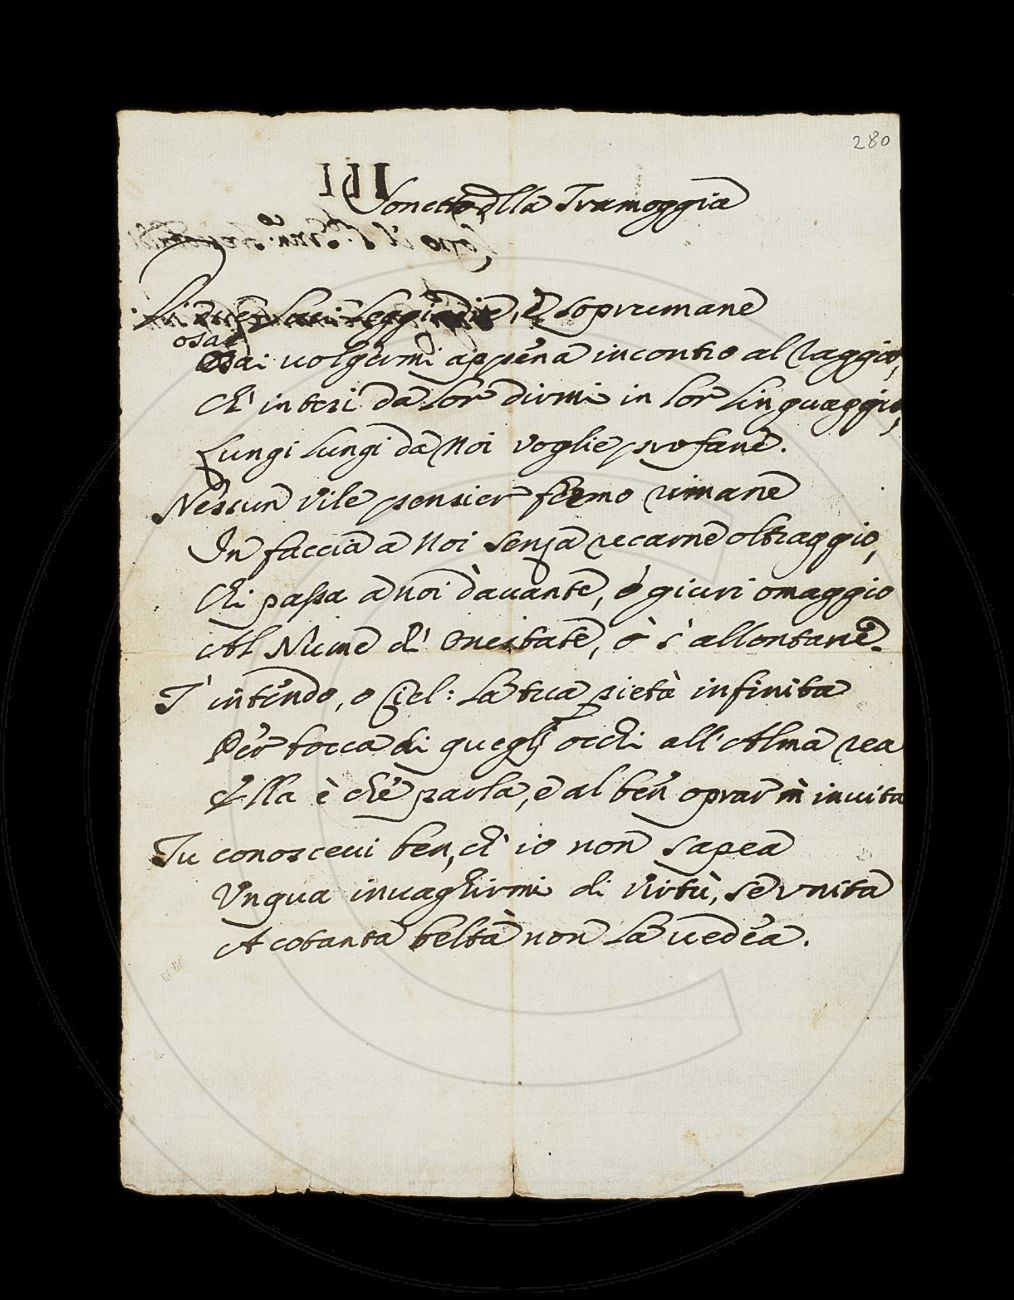 280
Sonetto della Tramoggia
Di que' Leggiadrie, e soprumane
osai
Osai uolgermi appena incontro al raggio,
Ch' intesi da lor dirmi in lor linguaggio,
Lungi lungi da Noi voglie profane.
Nessun vile pensier fermo rimane
In faccia a Noi senza recarne oltraggio,
Chi passa a noi dauante, o giuri omaggio
Al Nume d' Onestate, o s' allontane.
T' intendo, o Ciel: la tua pietà infinita
Per bocca di quegli occhi all' Alma rea
Ella è che parla, e al ben oprar m' inuita
Tu conosceui ben, ch' io non sapea
Vnqua inuaghirmi di Virtù, se vnita
A cotanta beltà non la uedea.